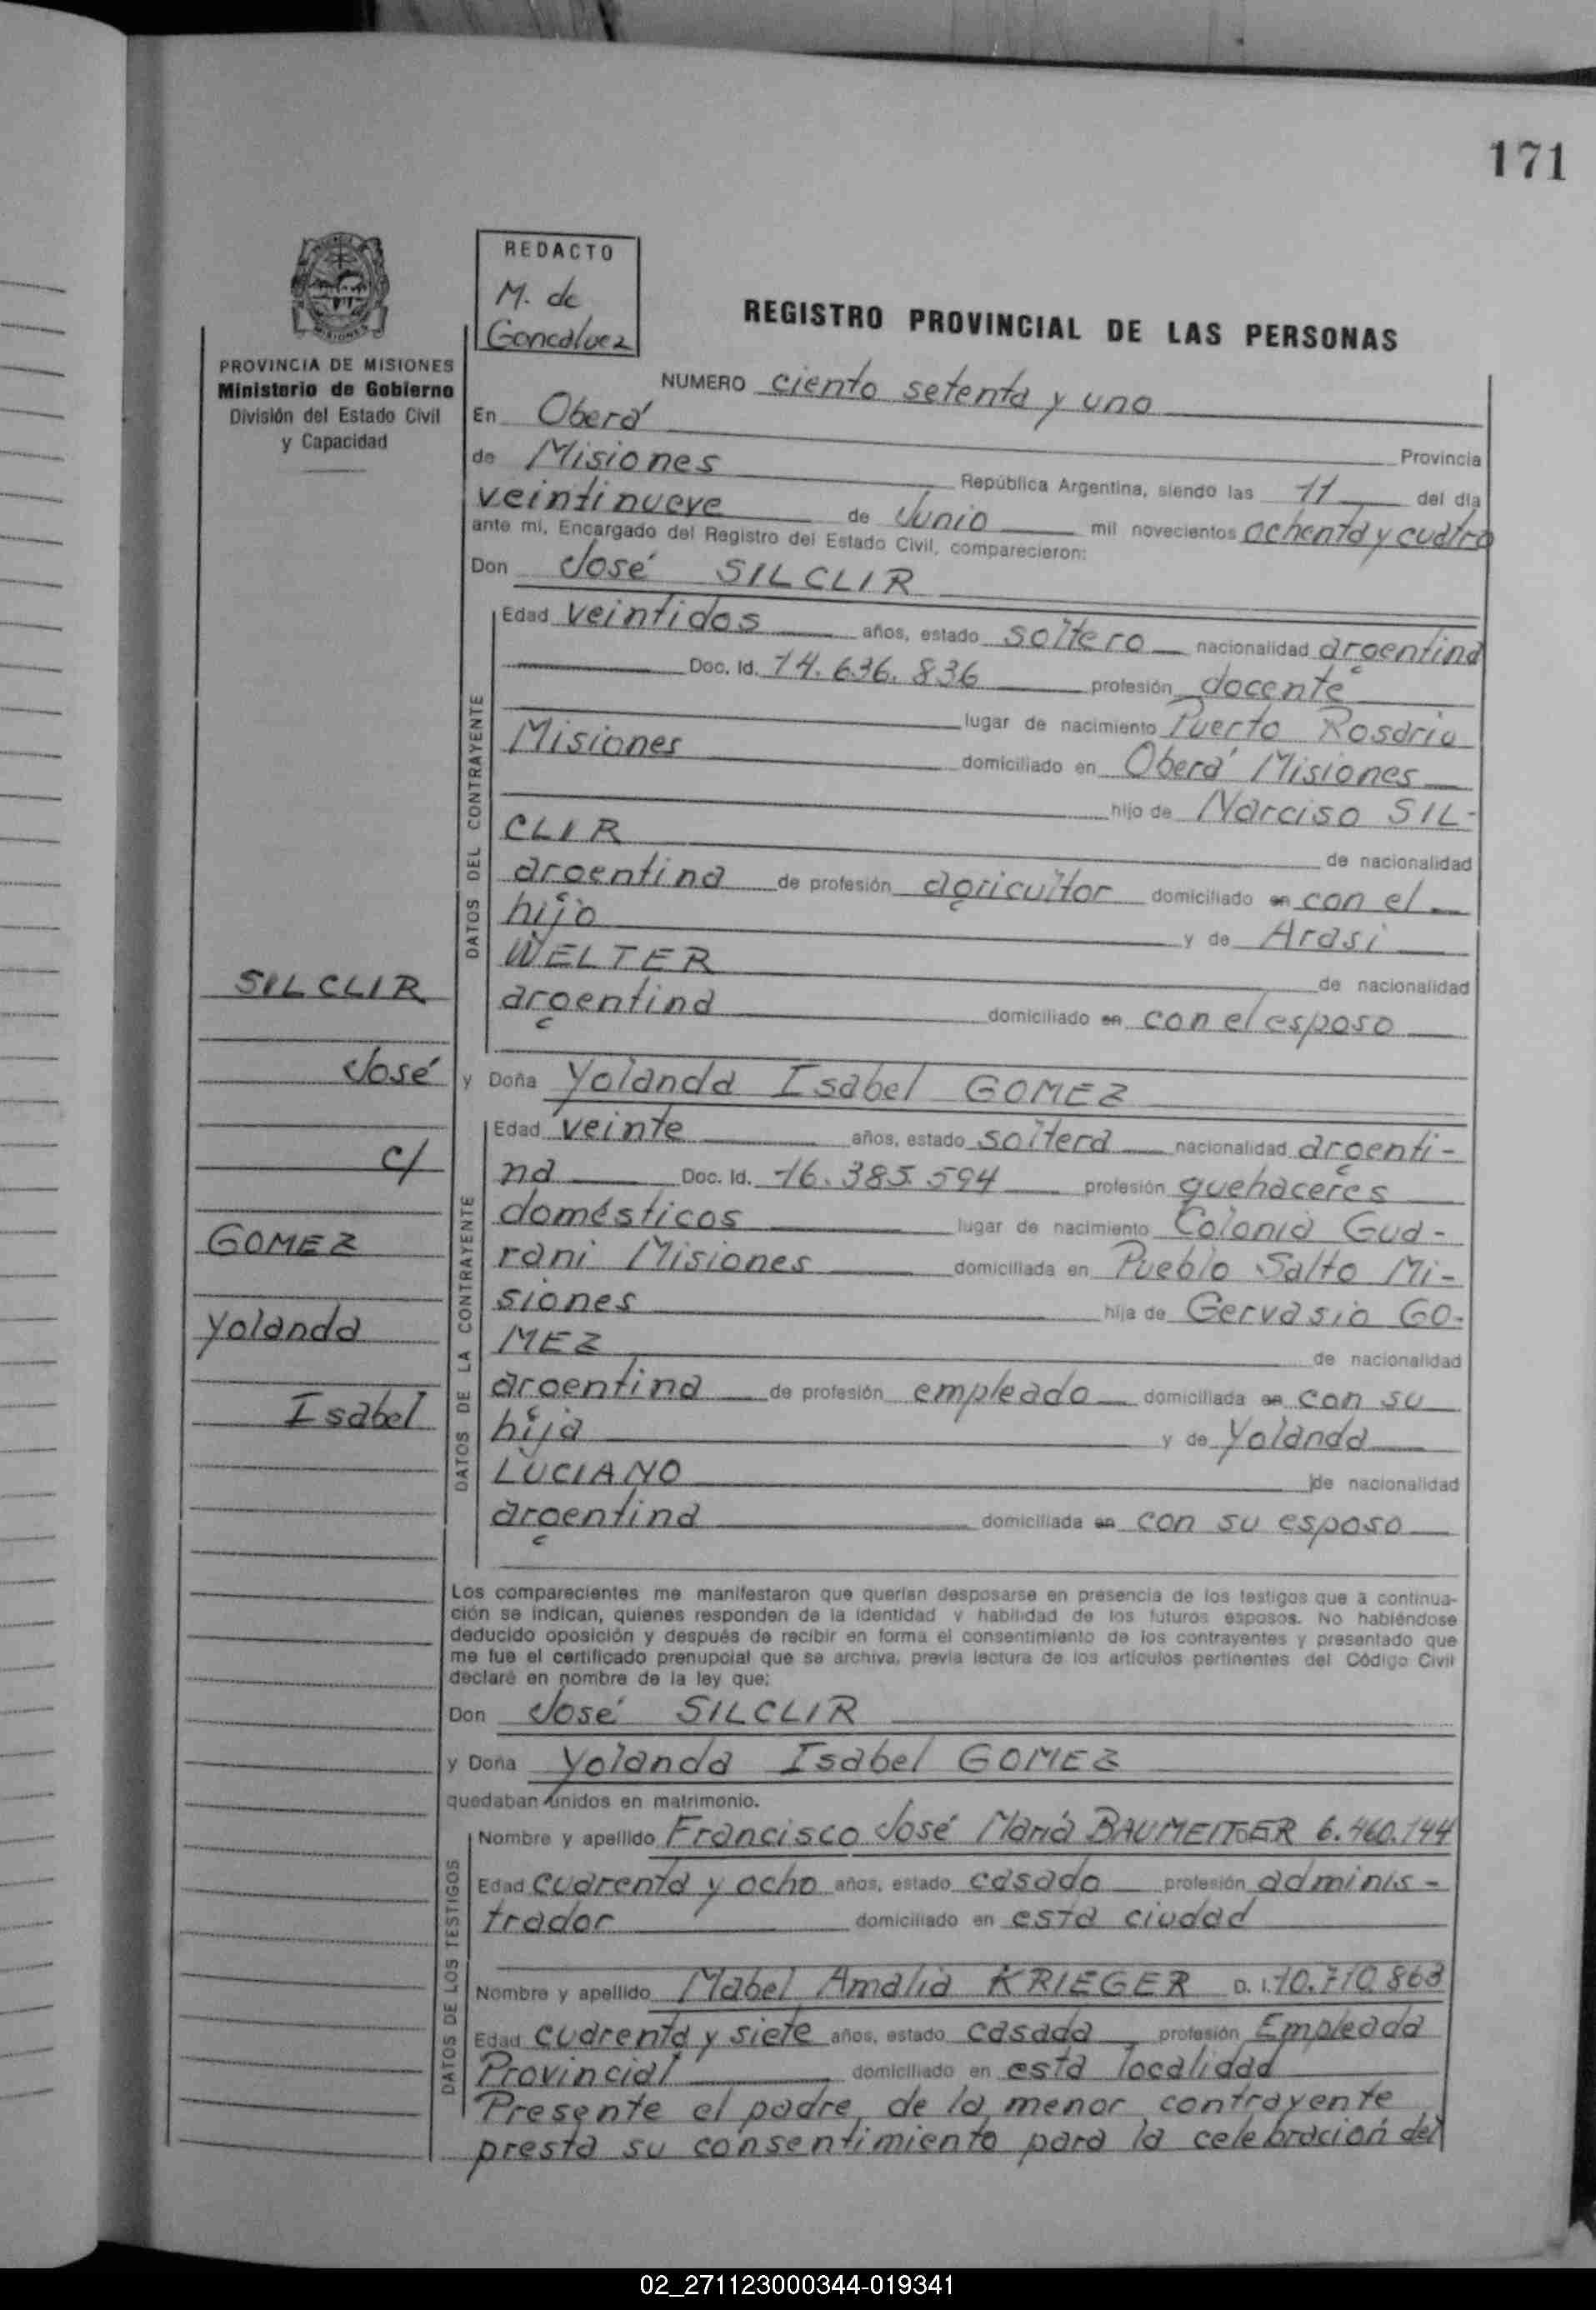 171
REDACTO
M. de
Goncalvez
REGISTRO PROVINCIAL DE LAS PERSONAS
PROVINCIA DE MISIONES
Ministerio de Gobierno
División del Estado Civil
y Capacidad
NUMERO ciento setenta y uno
En Oberá
Provincia
de Misiones República Argentina, siendo las 11 del día
veintinueve de Junio mil novecientos ochenta y cuatro
ante mí, Encargado del Registro del Estado Civil, comparecieron:
Don José SILCLIR
DATOS DEL CONTRAYENTE
Edad veintidos años, estado soltero nacionalidad argentina
Doc. Id. 14.636.836 profesión docente
lugar de nacimiento Puerto Rosario
Misiones domiciliado en Oberá Misiones
hijo de Narciso SIL-
CLIR de nacionalidad
argentina de profesión agricultor domiciliado en con el
hijo y de Arasi
WELTER de nacionalidad
argentina domiciliado en con el esposo
SILCLIR
José
c/
GOMEZ
Yolanda
Isabel
y Doña Yolanda Isabel GOMEZ
DATOS DE LA CONTRAYENTE
Edad veinte años, estado soltera nacionalidad argenti-
na Doc. Id. 16.385.594 profesión quehaceres
domésticos lugar de nacimiento Colonia Gua-
rani Misiones domiciliada en Pueblo Salto Mi-
siones hija de Gervasio GO-
MEZ de nacionalidad
argentina de profesión empleado domiciliada en con su
hija y de Yolanda
LUCIANO de nacionalidad
argentina domiciliada en con su esposo
Los comparecientes me manifestaron que querían desposarse en presencia de los testigos que a continua-
ción se indican, quienes responden de la identidad y habilidad de los futuros esposos. No habiéndose
deducido oposición y después de recibir en forma el consentimiento de los contrayentes y presentado que
me fue el certificado prenupcial que se archiva, previa lectura de los artículos pertinentes del Código Civil
declaré en nombre de la ley que:
Don José SILCLIR
y Doña Yolanda Isabel GOMEZ
quedaban unidos en matrimonio.
DATOS DE LOS TESTIGOS
Nombre y apellido Francisco José María 6.460.144
Edad cuarenta y ocho años, estado casado profesión adminis-
trador domiciliado en esta ciudad
Nombre y apellido Mabel Amalia KRIEGER D.I. 10.710.863
Edad cuarenta y siete años, estado casada profesión Empleada
Provincial domiciliado en esta localidad
Presente el padre de la menor contrayente
presta su consentimiento para la celebración del
02_271123000344-019341